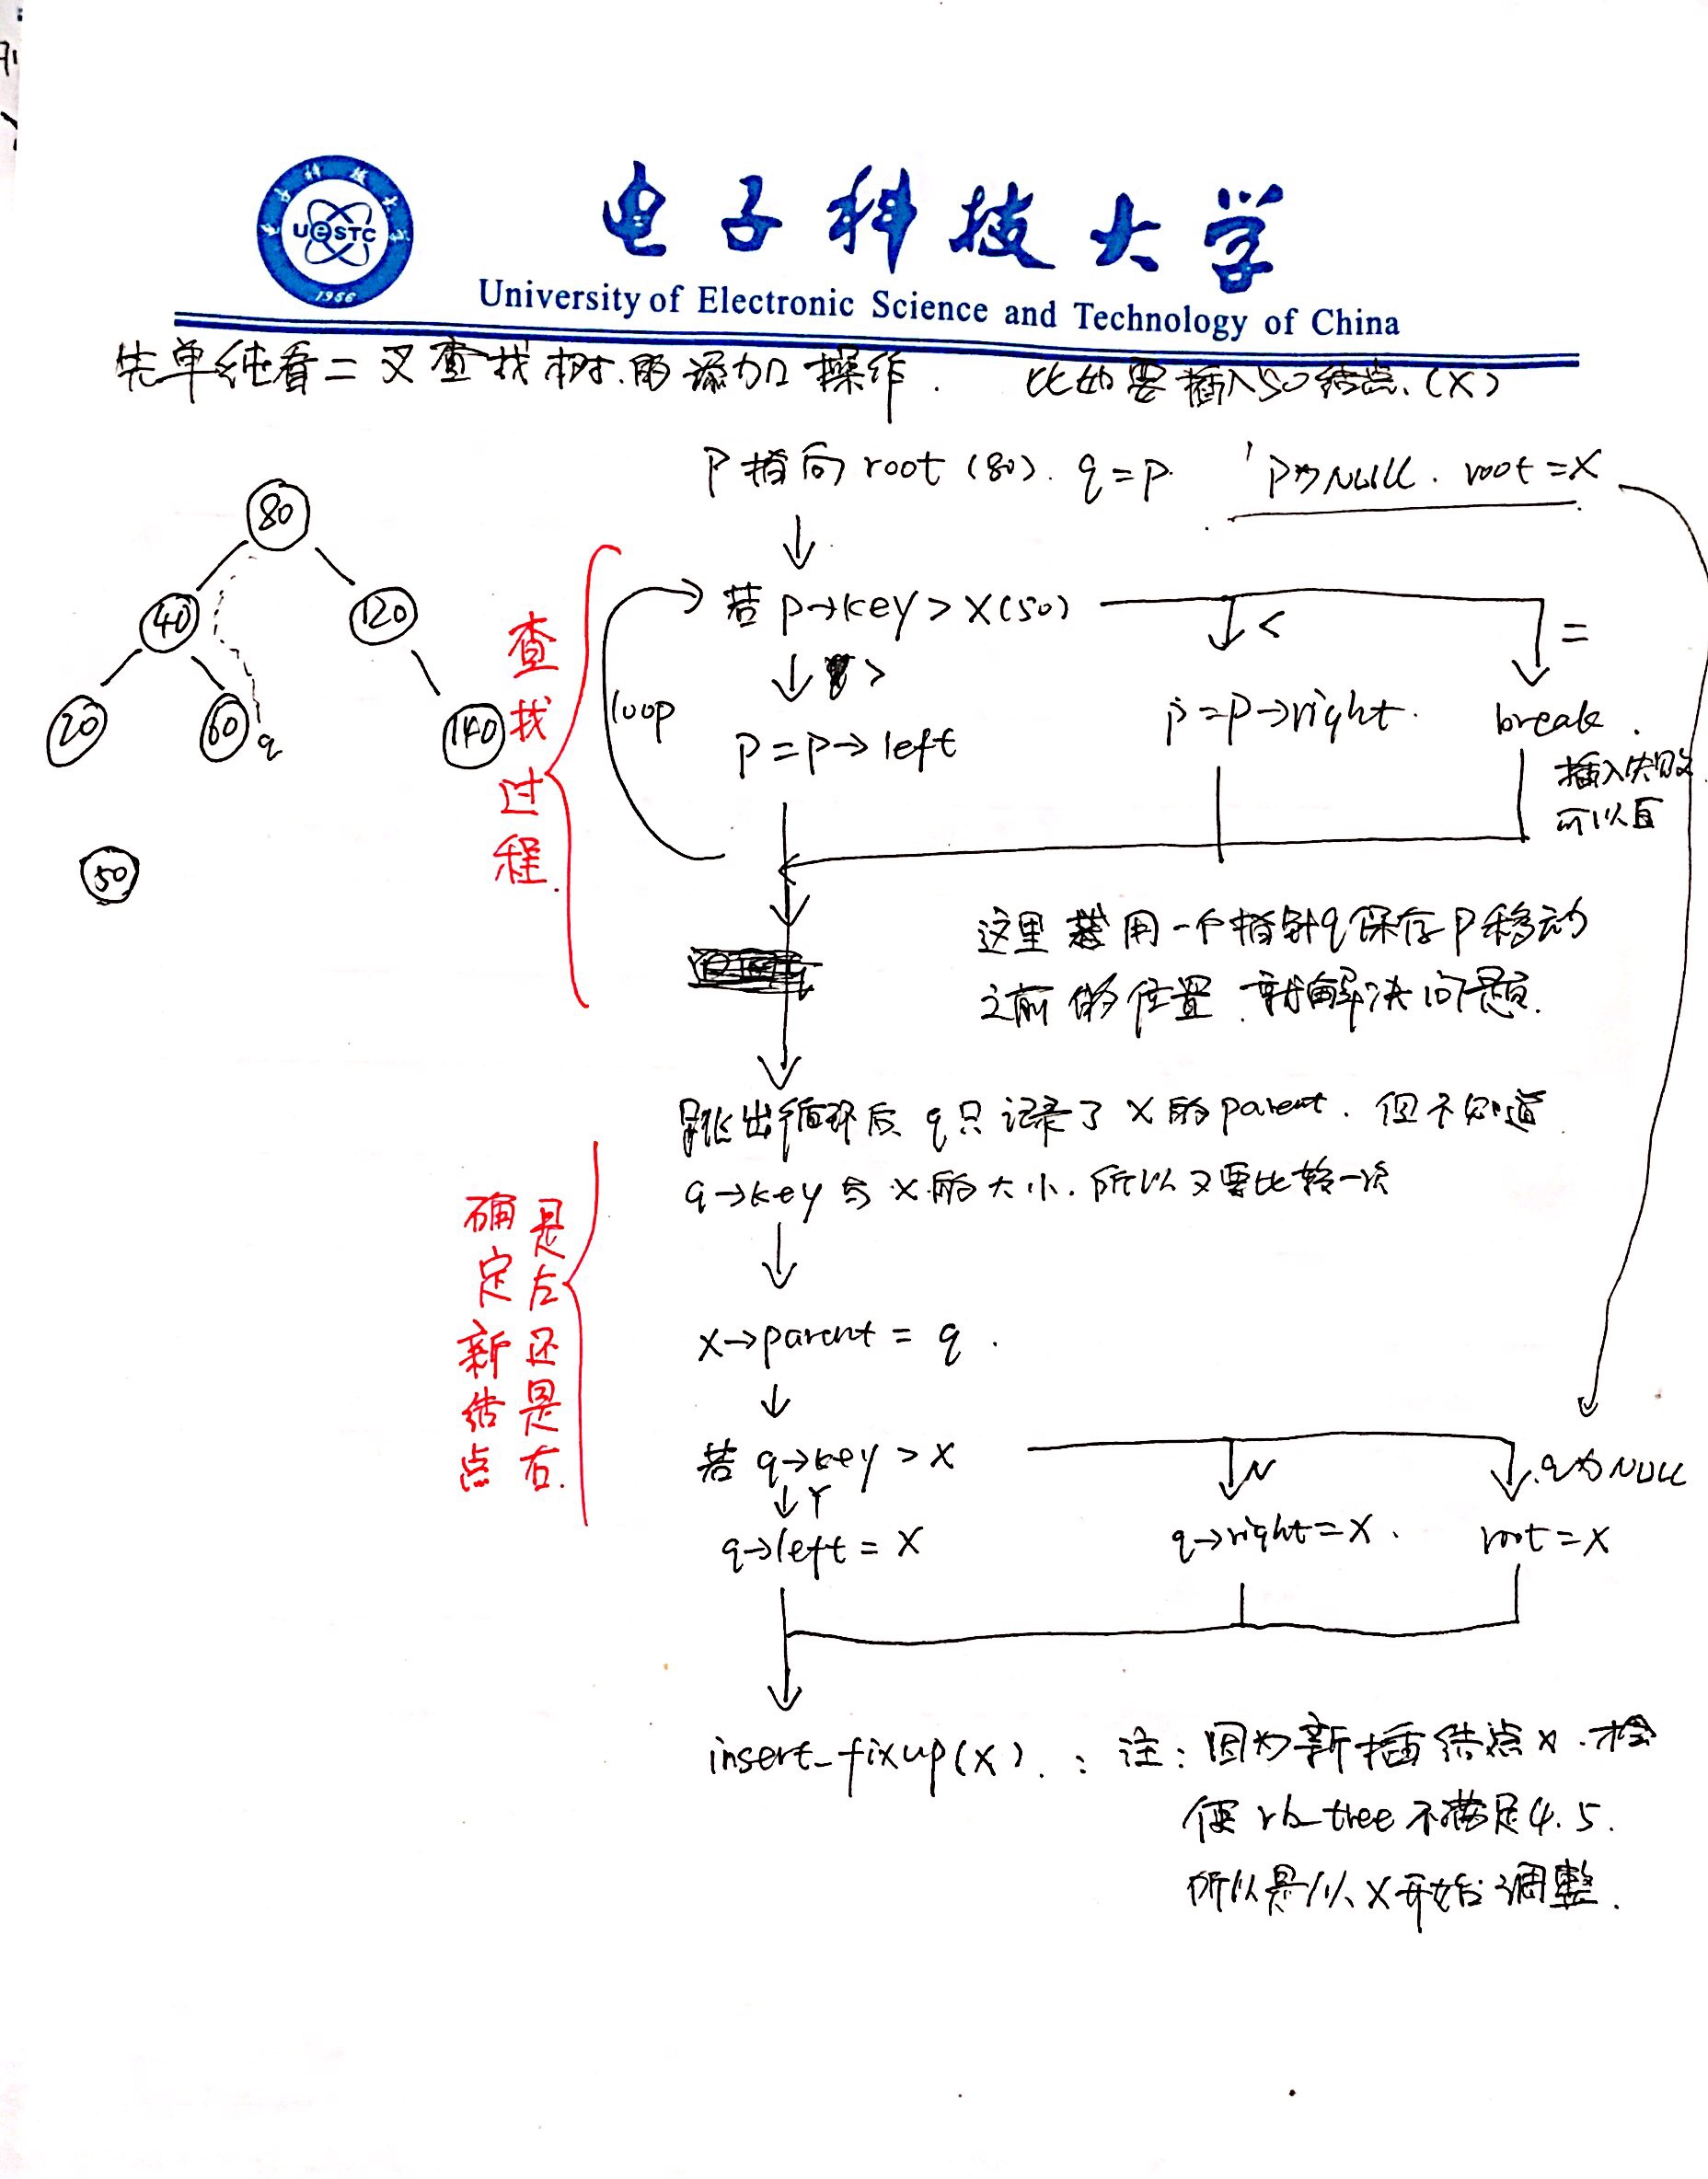 电子科技大学
UESTC
1956
University of Electronic Science and Technology of China
先单纯看二叉查找树的添加操作. 比如要插入50结点.(X)
P指向root(80). q=p. P为NULL. root=X
80
40
120
20
60
q
140
50
查找过程.
loop
若p→key>X(50)
<
=
>
p=p→left
p=p→right.
break.
插入失败
可以直
这里 用一个指针q保存p移动
之前的位置.就解决问题.
跳出循环后 q只记录了x的parent.但不知道
q→key与x的大小.所以又要比较一次
确定新结点
是左还是右.
x→parent = q.
若 q→key>x
Y
N
q为NULL
q→left=x
q→right=x.
root=x
insert_fixup(x).: 注: 因为新插结点x.才会
使rb_tree不满足4.5.
所以是以x开始调整.